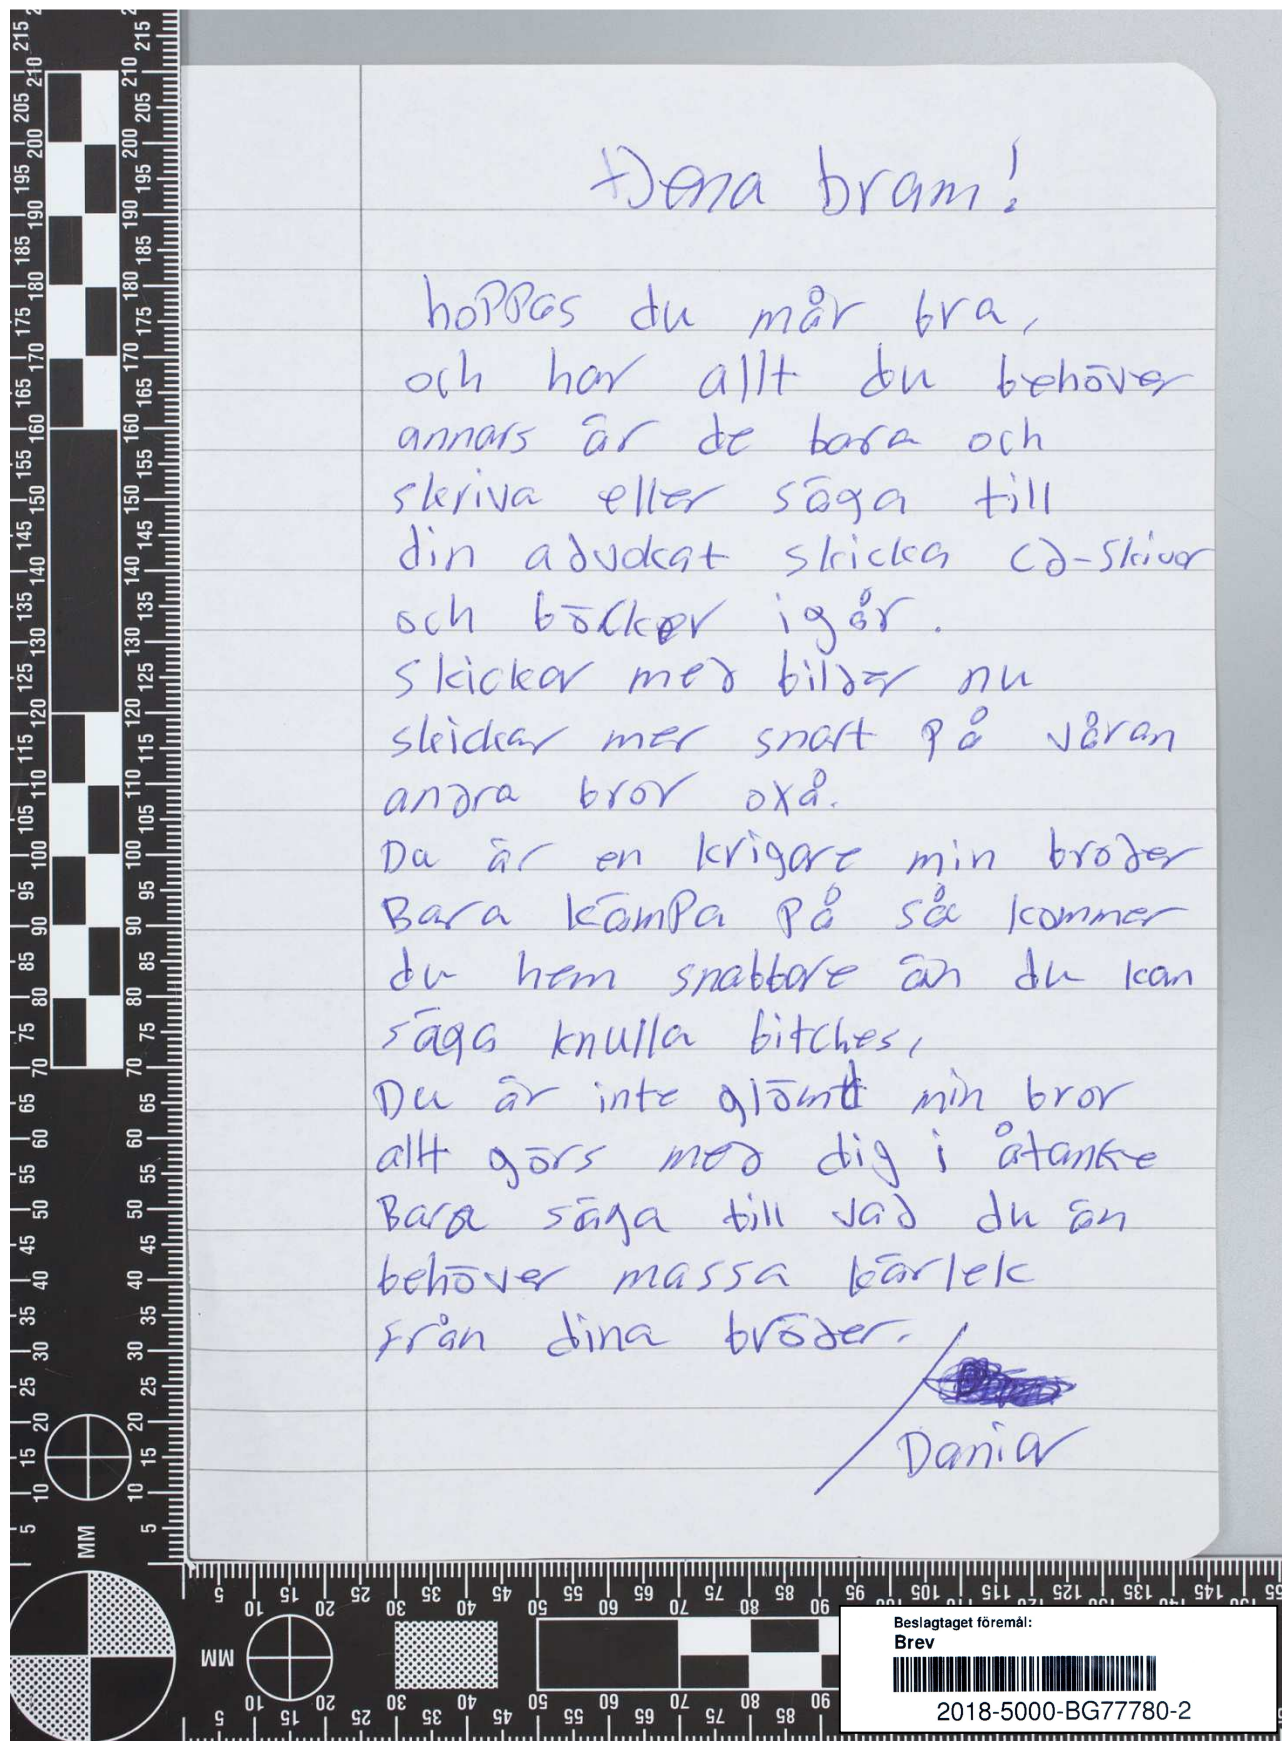 Dena bram!
hoppas du mår bra,
och har allt du behöver
annars är de bara och
skriva eller säga till
din advokat skicka CD-skivor
och böcker igår.
skickar med bilder nu
skickar mer snart på våran
andra bror oxå.
Du är en krigare min broder
Bara kämpa på så kommer
du hem snabbare än du kan
säga knulla bitches,
Du är inte glömd min bror
allt görs med dig i åtanke
Bara säga till vad du än
behöver massa kärlek
från dina bröder.
/
Daniar
Beslagtaget föremål:
Brev
2018-5000-BG77780-2
MM
MM